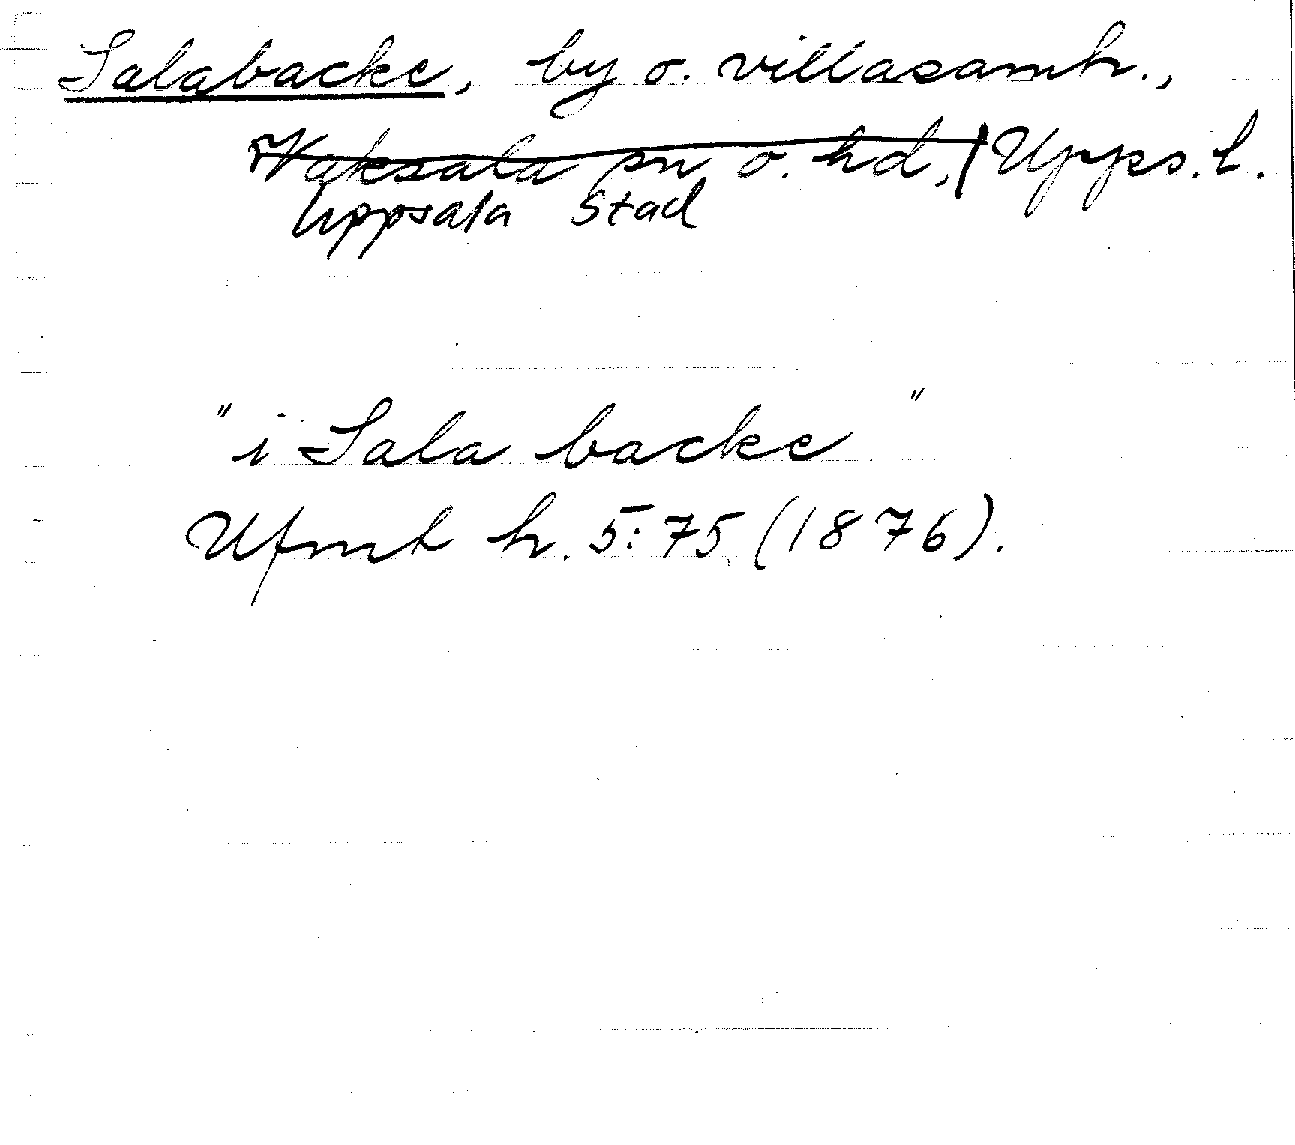 Salabacke, by o. villasamh.,
Vaksala sn o. hd, Upps. l.
Uppsala Stad
"i Sala backe"
Ufmt h. 5:75 (1876).